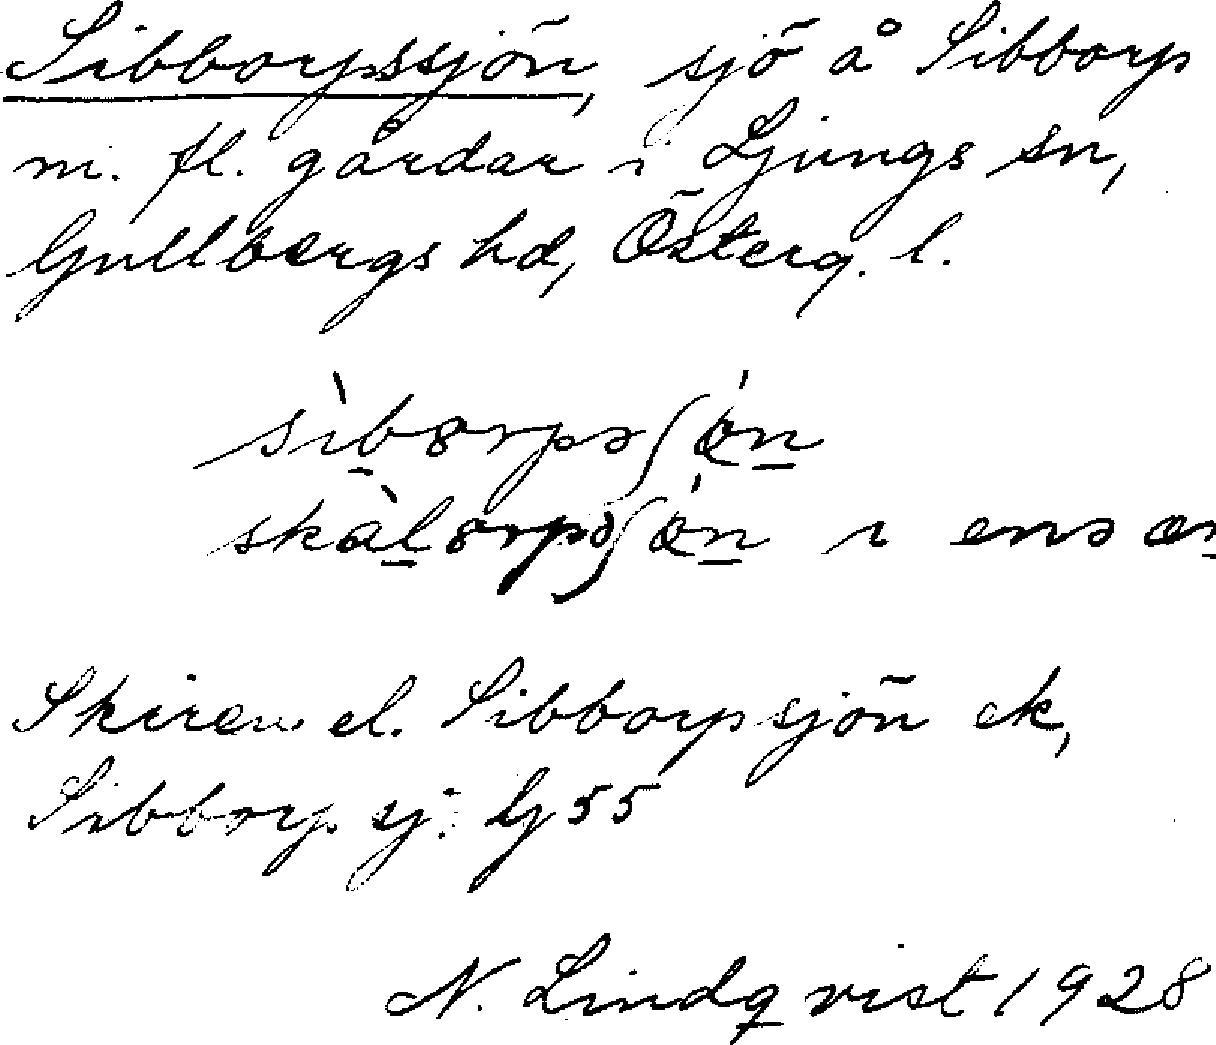 Sibborpssjön, sjö å Sibborp
m. fl. gårdar i Ljungs sn,
Gullbergs hd, Österg. l.
sìbɞrpsʃǿn
skàlɞrpsʃǿn ı enə
Skiren el. Sibborpsjön ek,
Sibborp sj. G 55
N. Lindqvist 1928